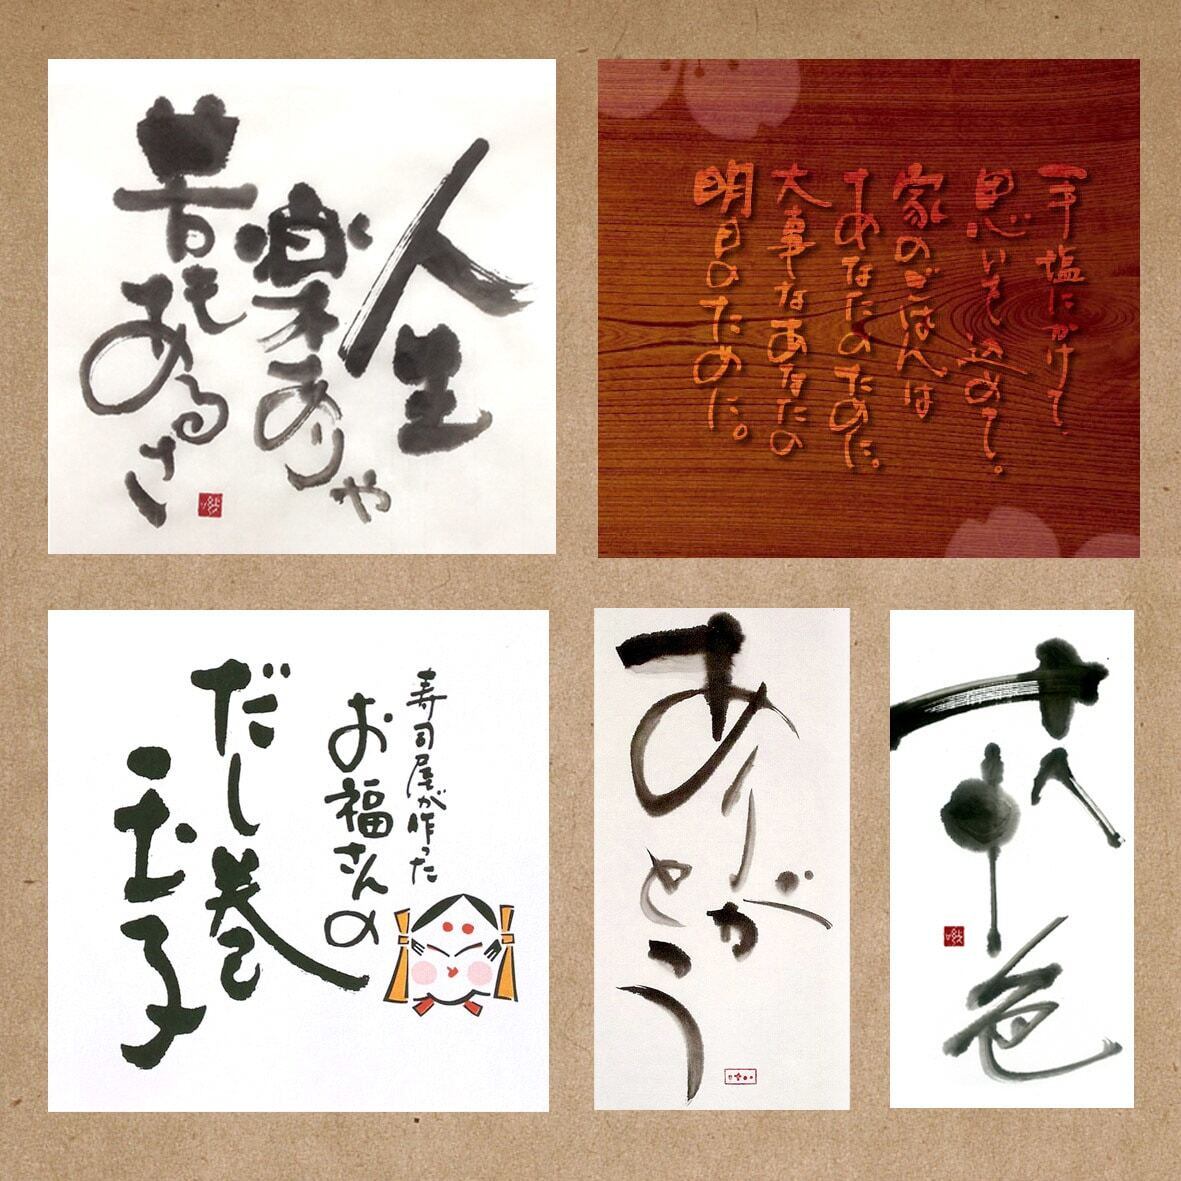 人生
楽ありゃ
苦もあるさ
手塩にかけて、
思いを込めて。
家のごはんは
あなたのために。
大事なあなたの
明日のために。
寿司屋が作った
お福さんの
だし巻
玉子
ありが
とう
十人
十色